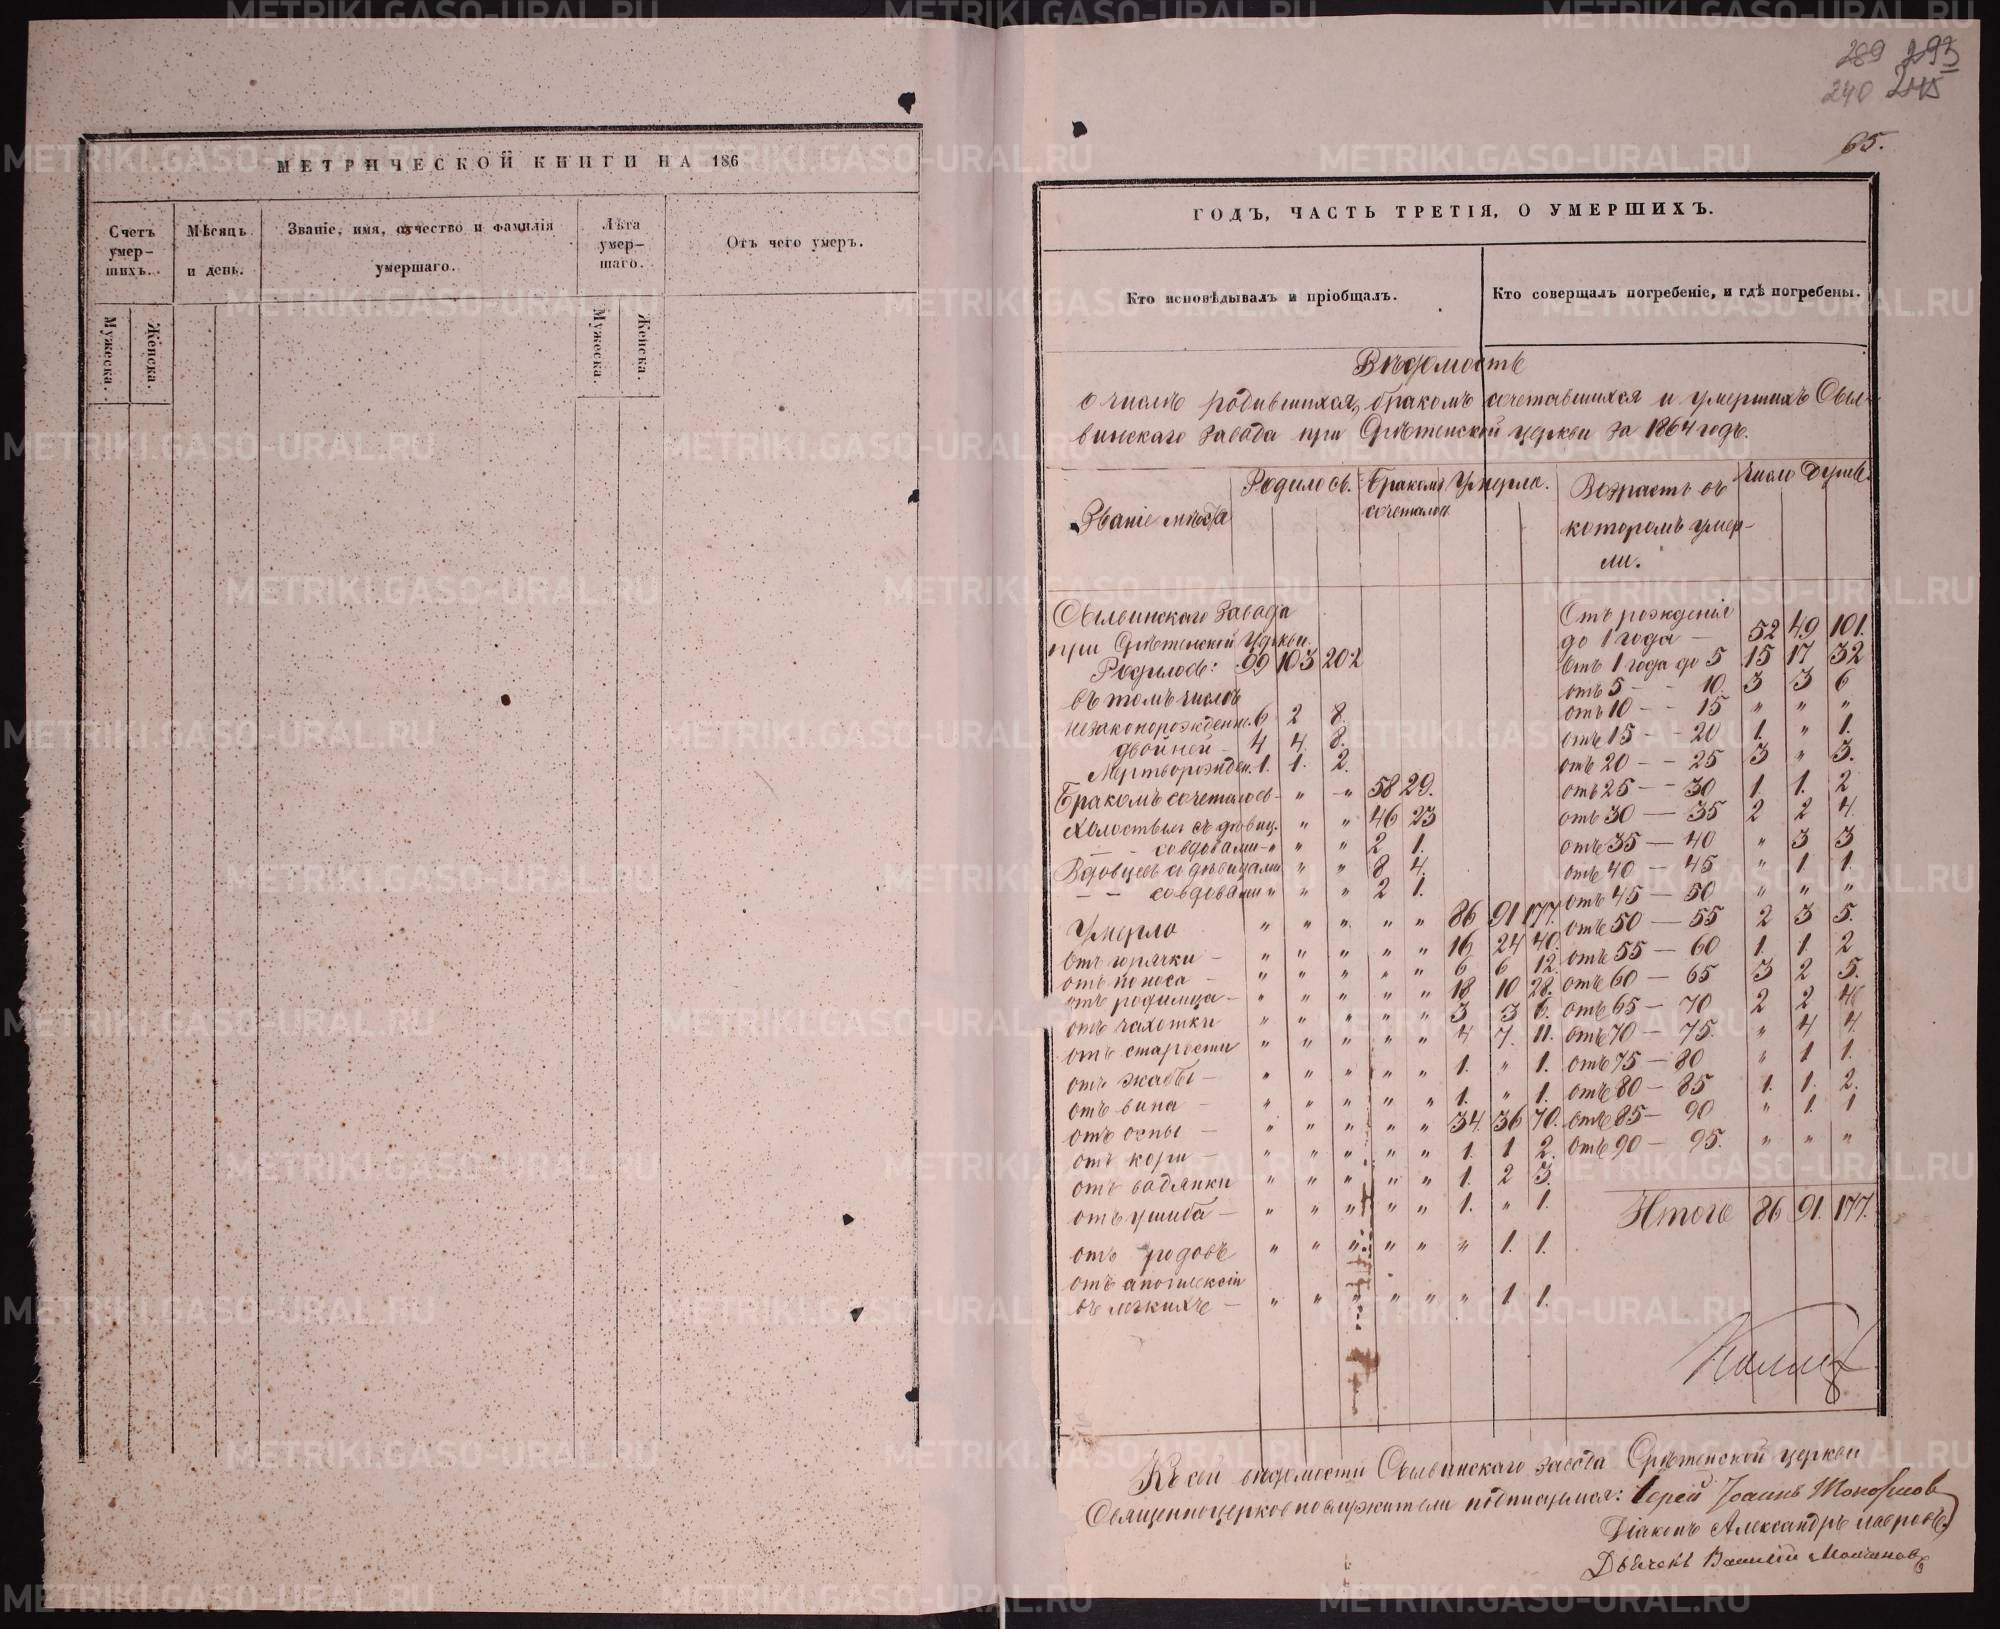 МЕТРИЧЕСКОЙ КНИГИ НА 186
Счетъ умер-шихъ.
Мѣсяцъ и день.
Званіе, имя, отчество и фамилія умершаго.
Лѣта умер-шаго.
Отъ чего умеръ.
Мужеска.
Женска.
Мужеска.
Женска.
289 293
240 245
65.
ГОДЪ, ЧАСТЬ ТРЕТІЯ, О УМЕРШИХЪ.
Кто исповѣдывалъ и пріобщалъ.
Кто совершалъ погребеніе, и гдѣ погребены.
Вѣдомость
о числѣ родившихся, бракомъ сочетавшихся и умершихъ Сыл-
винскаго завода при Срѣтенской церкви за 1864 годъ.
Званіе мѣста
Родилось.
Бракомъ сочеталось
Умерло.
Возрастъ въ которомъ умер-ли.
Число душъ.
Сылвинскаго завода
при Срѣтенской Церкви
Родилось: 99 103 202
въ томъ числѣ
незаконорожденн. 6 2 8.
двойней - 4 4. 8.
Мертворожден. 1. 1. 2.
Бракомъ сочеталось - " " 58 29.
Холостыхъ съ дѣвиц. " " 46 23
— - совдовами - " " " 2 1.
Вдовцевъ съ дѣвицами " " 8 4.
— - совдовами " " " 2 1.
Умерло " " " " " 86 91 177.
отъ горячки - " " " " " 16 24 40.
отъ поноса - " " " " " 6 6 12.
отъ родимца - " " " " " 18 10 28.
отъ чахотки " " " " " 3 3 6.
отъ старости " " " " " 4 7. 11.
отъ жабы - " " " " " 1. " 1.
отъ вина - " " " " " 1. " 1.
отъ оспы - " " " " " 34. 36 70.
отъ кори - " " " " " 1. 1 2.
отъ водянки " " " " " 1. 2 3.
отъ ушиба - " " " " " 1. " 1.
отъ родовъ " " " " " " 1. 1.
отъ апоплексіи
въ легкихъ - " " " " " " 1. 1.
Отъ рожденія
до 1 года — 52 49 101.
отъ 1 года до 5 15 17 32
отъ 5 - - 10. 3 3 6
отъ 10 - - 15 " " "
отъ 15 - - 20 1. " 1.
отъ 20 - - 25 3 " 3.
отъ 25 - - 30 1. 1. 2
отъ 30 — 35 2 2 4.
отъ 35 — 40 " 3 3
отъ 40 — 45 " 1 1.
отъ 45 — 50 " " "
отъ 50 — 55 2 3 5.
отъ 55 — 60 1. 1. 2
отъ 60 — 65 3 2 5.
отъ 65 — 70 2 2 4
отъ 70 — 75. " 4 4.
отъ 75 — 80 " 1 1.
отъ 80 — 85 1. 1. 2.
отъ 85 — 90 " 1. 1
отъ 90 — 95. " " "
Итого 86 91. 177.
Къ сей вѣдомости Сылвинскаго завода Срѣтенской церкви
Священноцерковнослужители подписуемся: Іерей Іоаннъ
Діаконъ Александръ
Дьячекъ Василій Молчановъ
METRIKI.GASO-URAL.RU